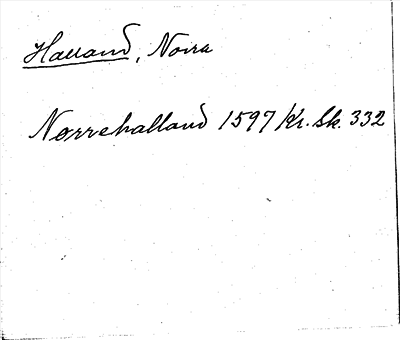 Halland, Norra
Nørrehalland 1597 Kr. Sk. 332